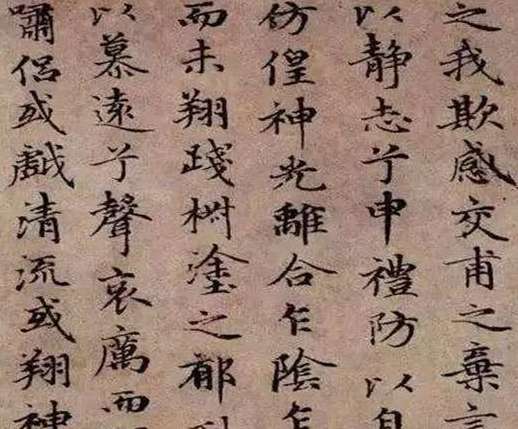 之我欺感交甫之棄言
以静志兮申禮防以自
仿偟神光離合乍陰乍
而未翔踐椒塗之郁烈
以慕遠兮聲哀厲而
嘯侣或戲清流或翔神